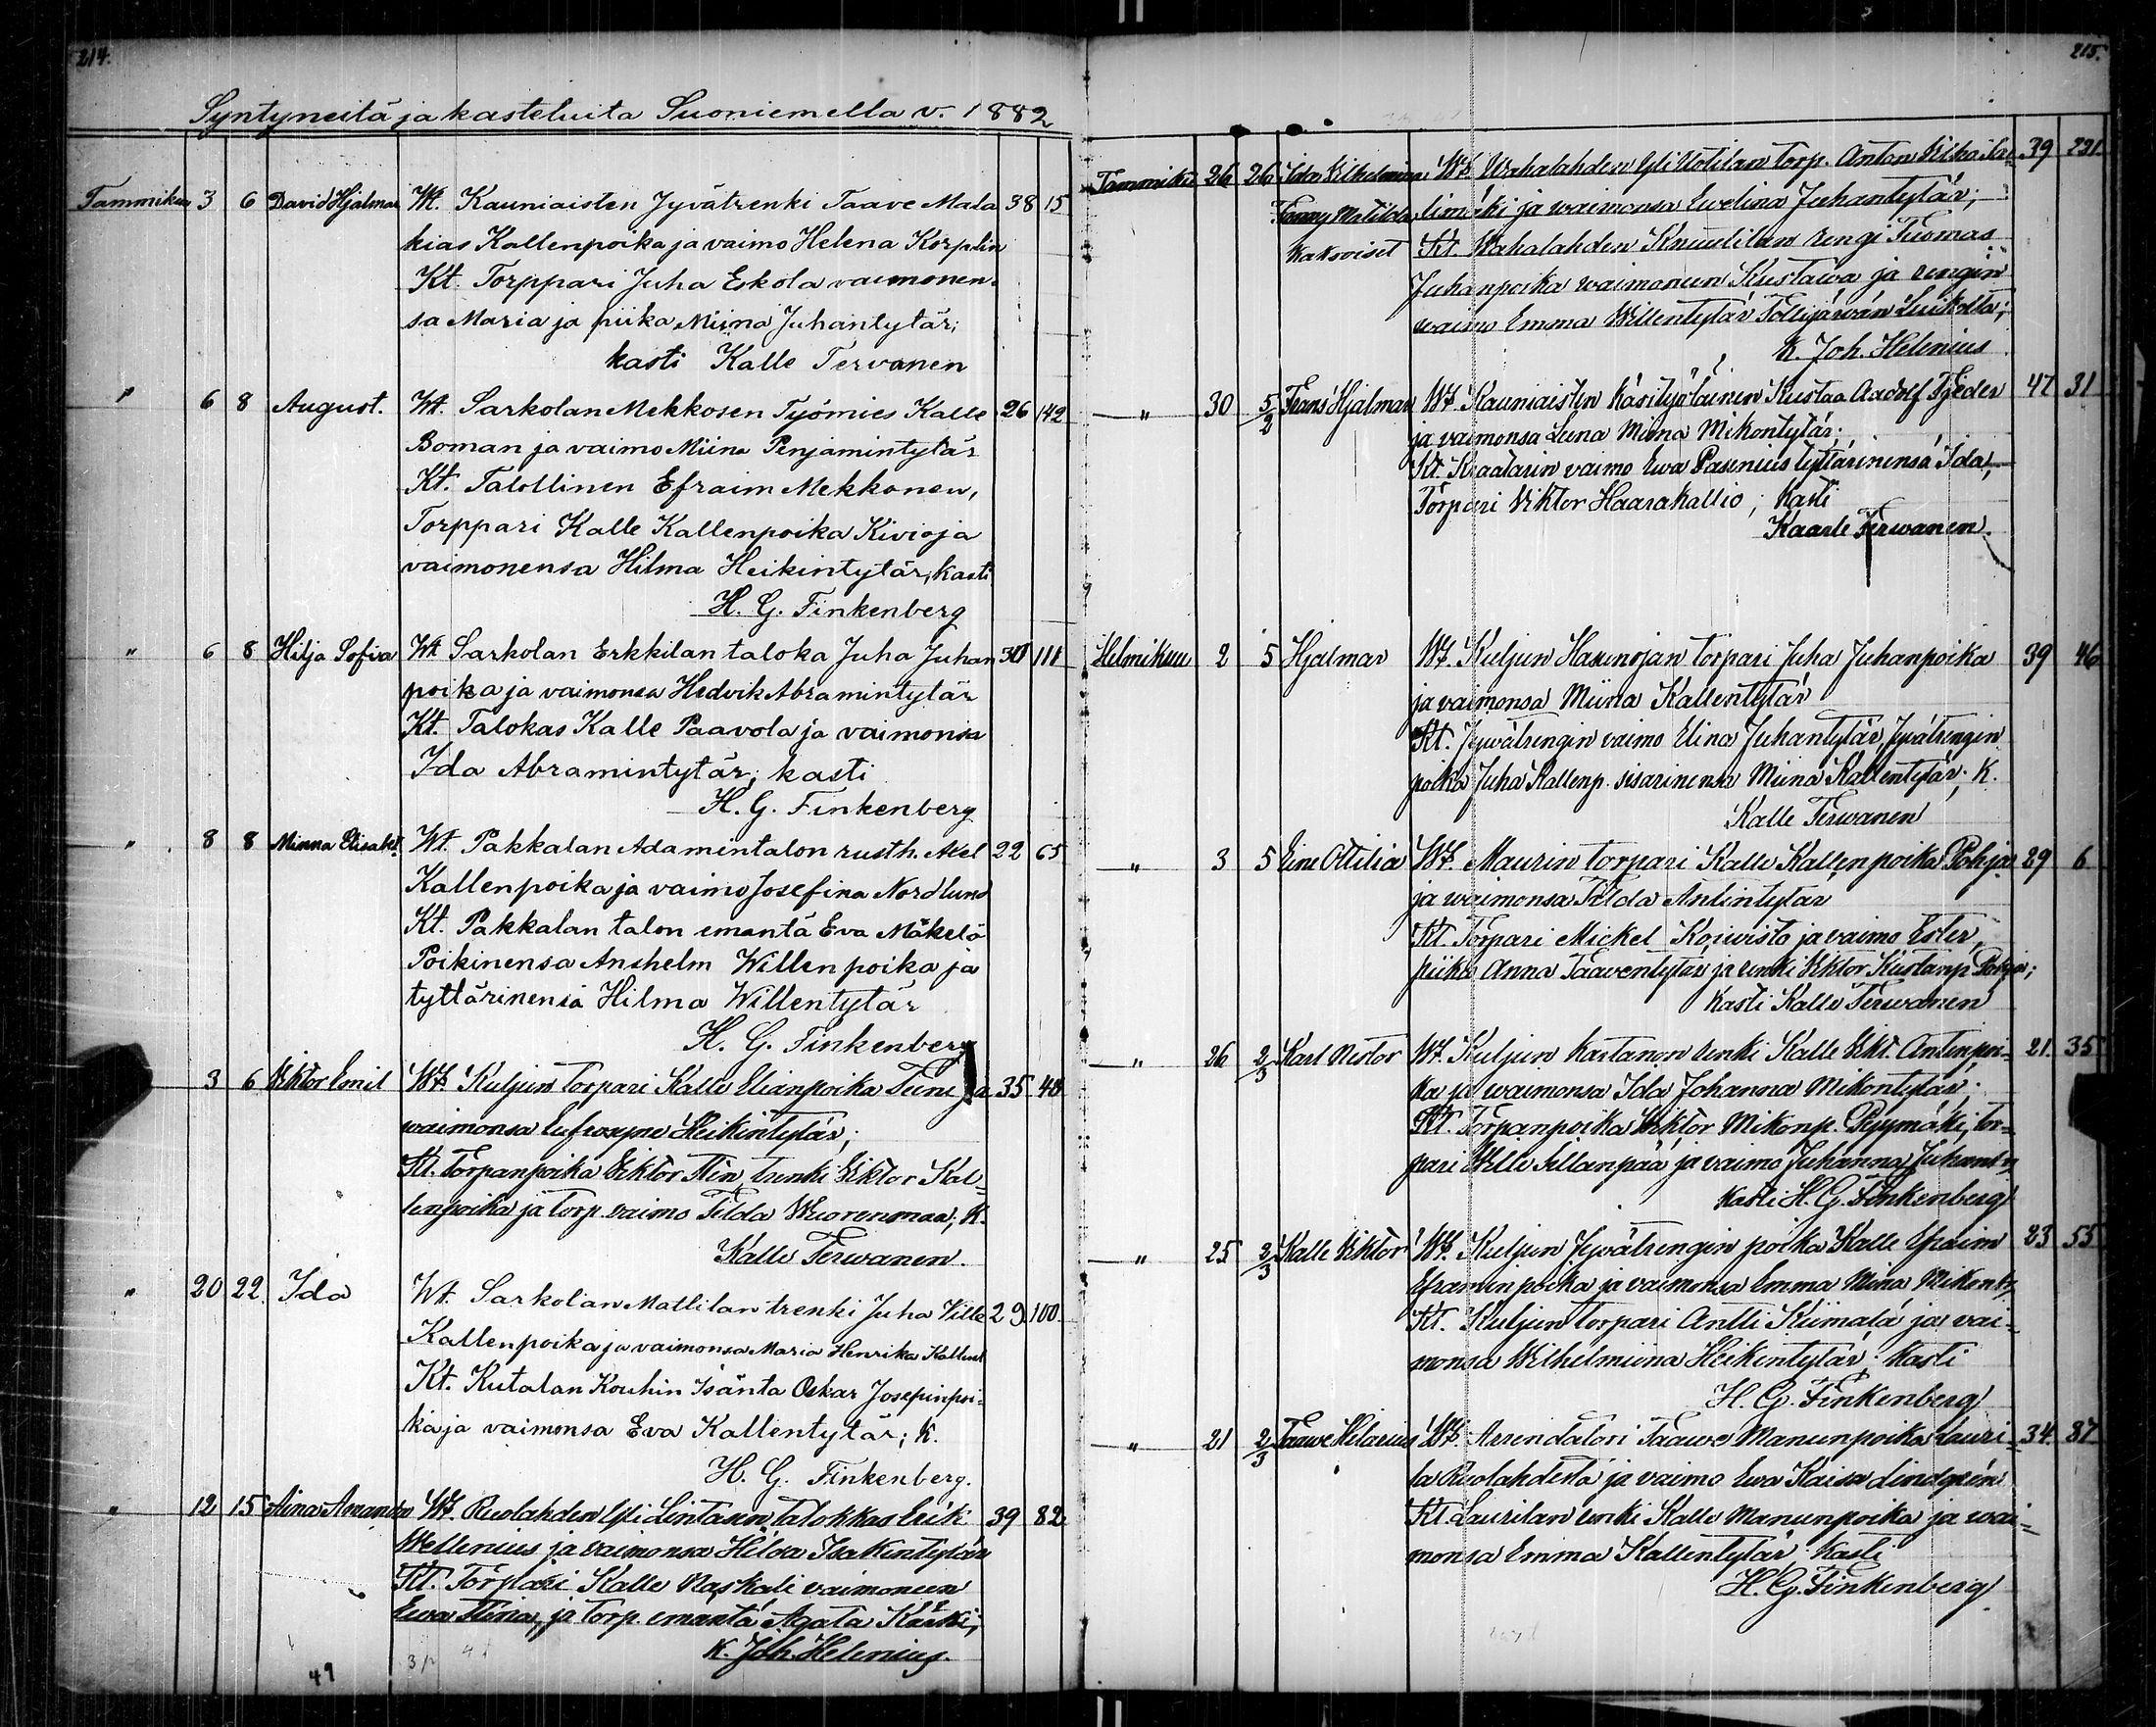 214.
Syntyneitä ja kasteluita Suoniemella v. 1882
Tammikuu 3 6 David Hjalmar Wt. Kauniaisten Jyvätrenki Taave Mala 38 15
kias Kallenpoika ja vaimo Helena Korplin
Kt. Torppari Juha Eskola vaimonen-
sa Maria ja piika Miina Juhantytär;
kasti Kalle Tervanen
" 6 8 August. Wt. Sarkolan Mekkosen Työmies Kalle 26 142
Boman ja vaimo Miina Penjamintytär
Kt. Talollinen Efraim Mekkonen,
Torppari Kalle Kallenpoika Kivioja
vaimonensa Hilma Heikintytär, kasti
H. G. Finkenberg
" 6 8 Hilja Sofia Wt Sarkolan Erkkilan taloka Juha Juhan 111
poika ja vaimonsa Hedvik Abramintytär
Kt. Talokas Kalle Paavola ja vaimonsa
Ida Abramintytär; kasti
H. G. Finkenberg
" 8 8 Minna Elisabt. Wt. Pakkalan Adamintalon rusth. Akel 22 65
Kallenpoika ja vaimo Josefina Nordlund
Kt. Pakkalan talon emäntä Eva Mäkelä
Poikinensa Anshelm Willenpoika ja
tyttärinensä Hilma Willentytär
H. G. Finkenberg
3 6 Viktor Emil Wt. Kuljun torpari Kalle Elianpoika ja 35 48
waimonsa Eufrosyne Heikintytär;
Kt. Torpanpoika Viktor trenki Viktor Kal-
lenpoika ja torp. vaimo Tilda Wuorenmaa; K.
Kalle Terwanen.
" 20 22. Ida Wt. Sarkolan Mattilan trenki Juha Ville 29 100.
Kallenpoika ja vaimonsa Maria Henrika Kallent
Kt. Kutalan Kouhin Isäntä Oskar Josepinpoi-
ka ja vaimonsa Eva Kallentytär; K.
H. G. Finkenberg.
" 12 15 Aina Amanda Wt. Ruolahden Yli Lintusen talokkas Erik 39 82
Wellenius ja vaimonsa Hilda Isakintytär
Kt. Torpari Kalle Naskali vaimoneen
Ewa Stina, ja torp. emäntä Agata Kärki;
K. Joh. Helenius.
49
3p
215.
Tammikuu 26 26 Ida Vilhelmina, Wt. Wahalahden Yli Uotilan torp. Anton Vilho 39 231
Fanny Matilda limäki ja waimonsa Ewelina Juhantytär;
Kaksoiset Kt. Wahalahden Knuutilan rengi Tuomas
Juhanpoika waimoneen Kustawa ja rengin
waimo Emma Willentytär
K. Joh. Helenius
" 30 5/2 Frans Hjalmar Wt. Kauniaisten Käsityöläinen Kustaa Aadolf Tjeder 47 31
ja vaimonsa Leena Miina Mikontytär;
Kt. Kraatarin vaimo Ewa Pasenius tyttärinensä Ida,
Torpari Viktor Haarakallio; Kasti
Kaarle Terwanen.
Helmikuu 2 5 Hjalmar Wt. Kuljun Hasunojan torpari Juha Juhanpoika 39 46
ja vaimonsa Miina Kallentytär
Kt. Jywätrengin vaimo Elina Juhantytär, Jywätrengin
poika Juha Kallenp. sisarinensa Miina Kallentytär; K.
Kalle Terwanen
" 3 5 Eine Ottilia Wt. Maurin torpari Kalle Kallenpoika Pohja 29 6
ja waimonsa Tilda Antintytär
Kt. Torpari Mickel Koiwisto ja vaimo Ester,
piika Anna Taawentytär ja renki Viktor Kustanp. Pohja;
Kasti Kalle Terwanen
" 26 2/3 Karl Nestor Wt. Kuljun Kartanon renki Kalle Vikt. Antinpoi- 21. 35
ka ja waimonsa Ida Johanna Mikontytär.
Kt. Torpanpoika Viktor Mikonp. Pyymäki, tor-
pari Wille Sillanpää ja vaimo Juhanna Juhant.
Kasti H. G. Finkenberg
" 25 2/3 Kalle Viktor Wt. Kuljun Jywätrengin poika Kalle Efraim 23 55
Efraiminpoika ja vaimonsa Emma Miina Mikont.
Kt. Kuljun torpari Antti Kiimalä ja vai-
monsa Wilhelmiina Heikintytär; Kasti
H. G. Finkenberg
" 21 2/3 Taawe Hilarius Wt. Arrendatori Taawe Manunpoika Lauri- 34. 87
la Ruolahdesta ja vaimo Ewa Kaisa Lindgrén
Kt. Laurilan renki Kalle Manunpoika ja wai-
monsa Emma Kallentytär; Kasti
H. G. Finkenberg